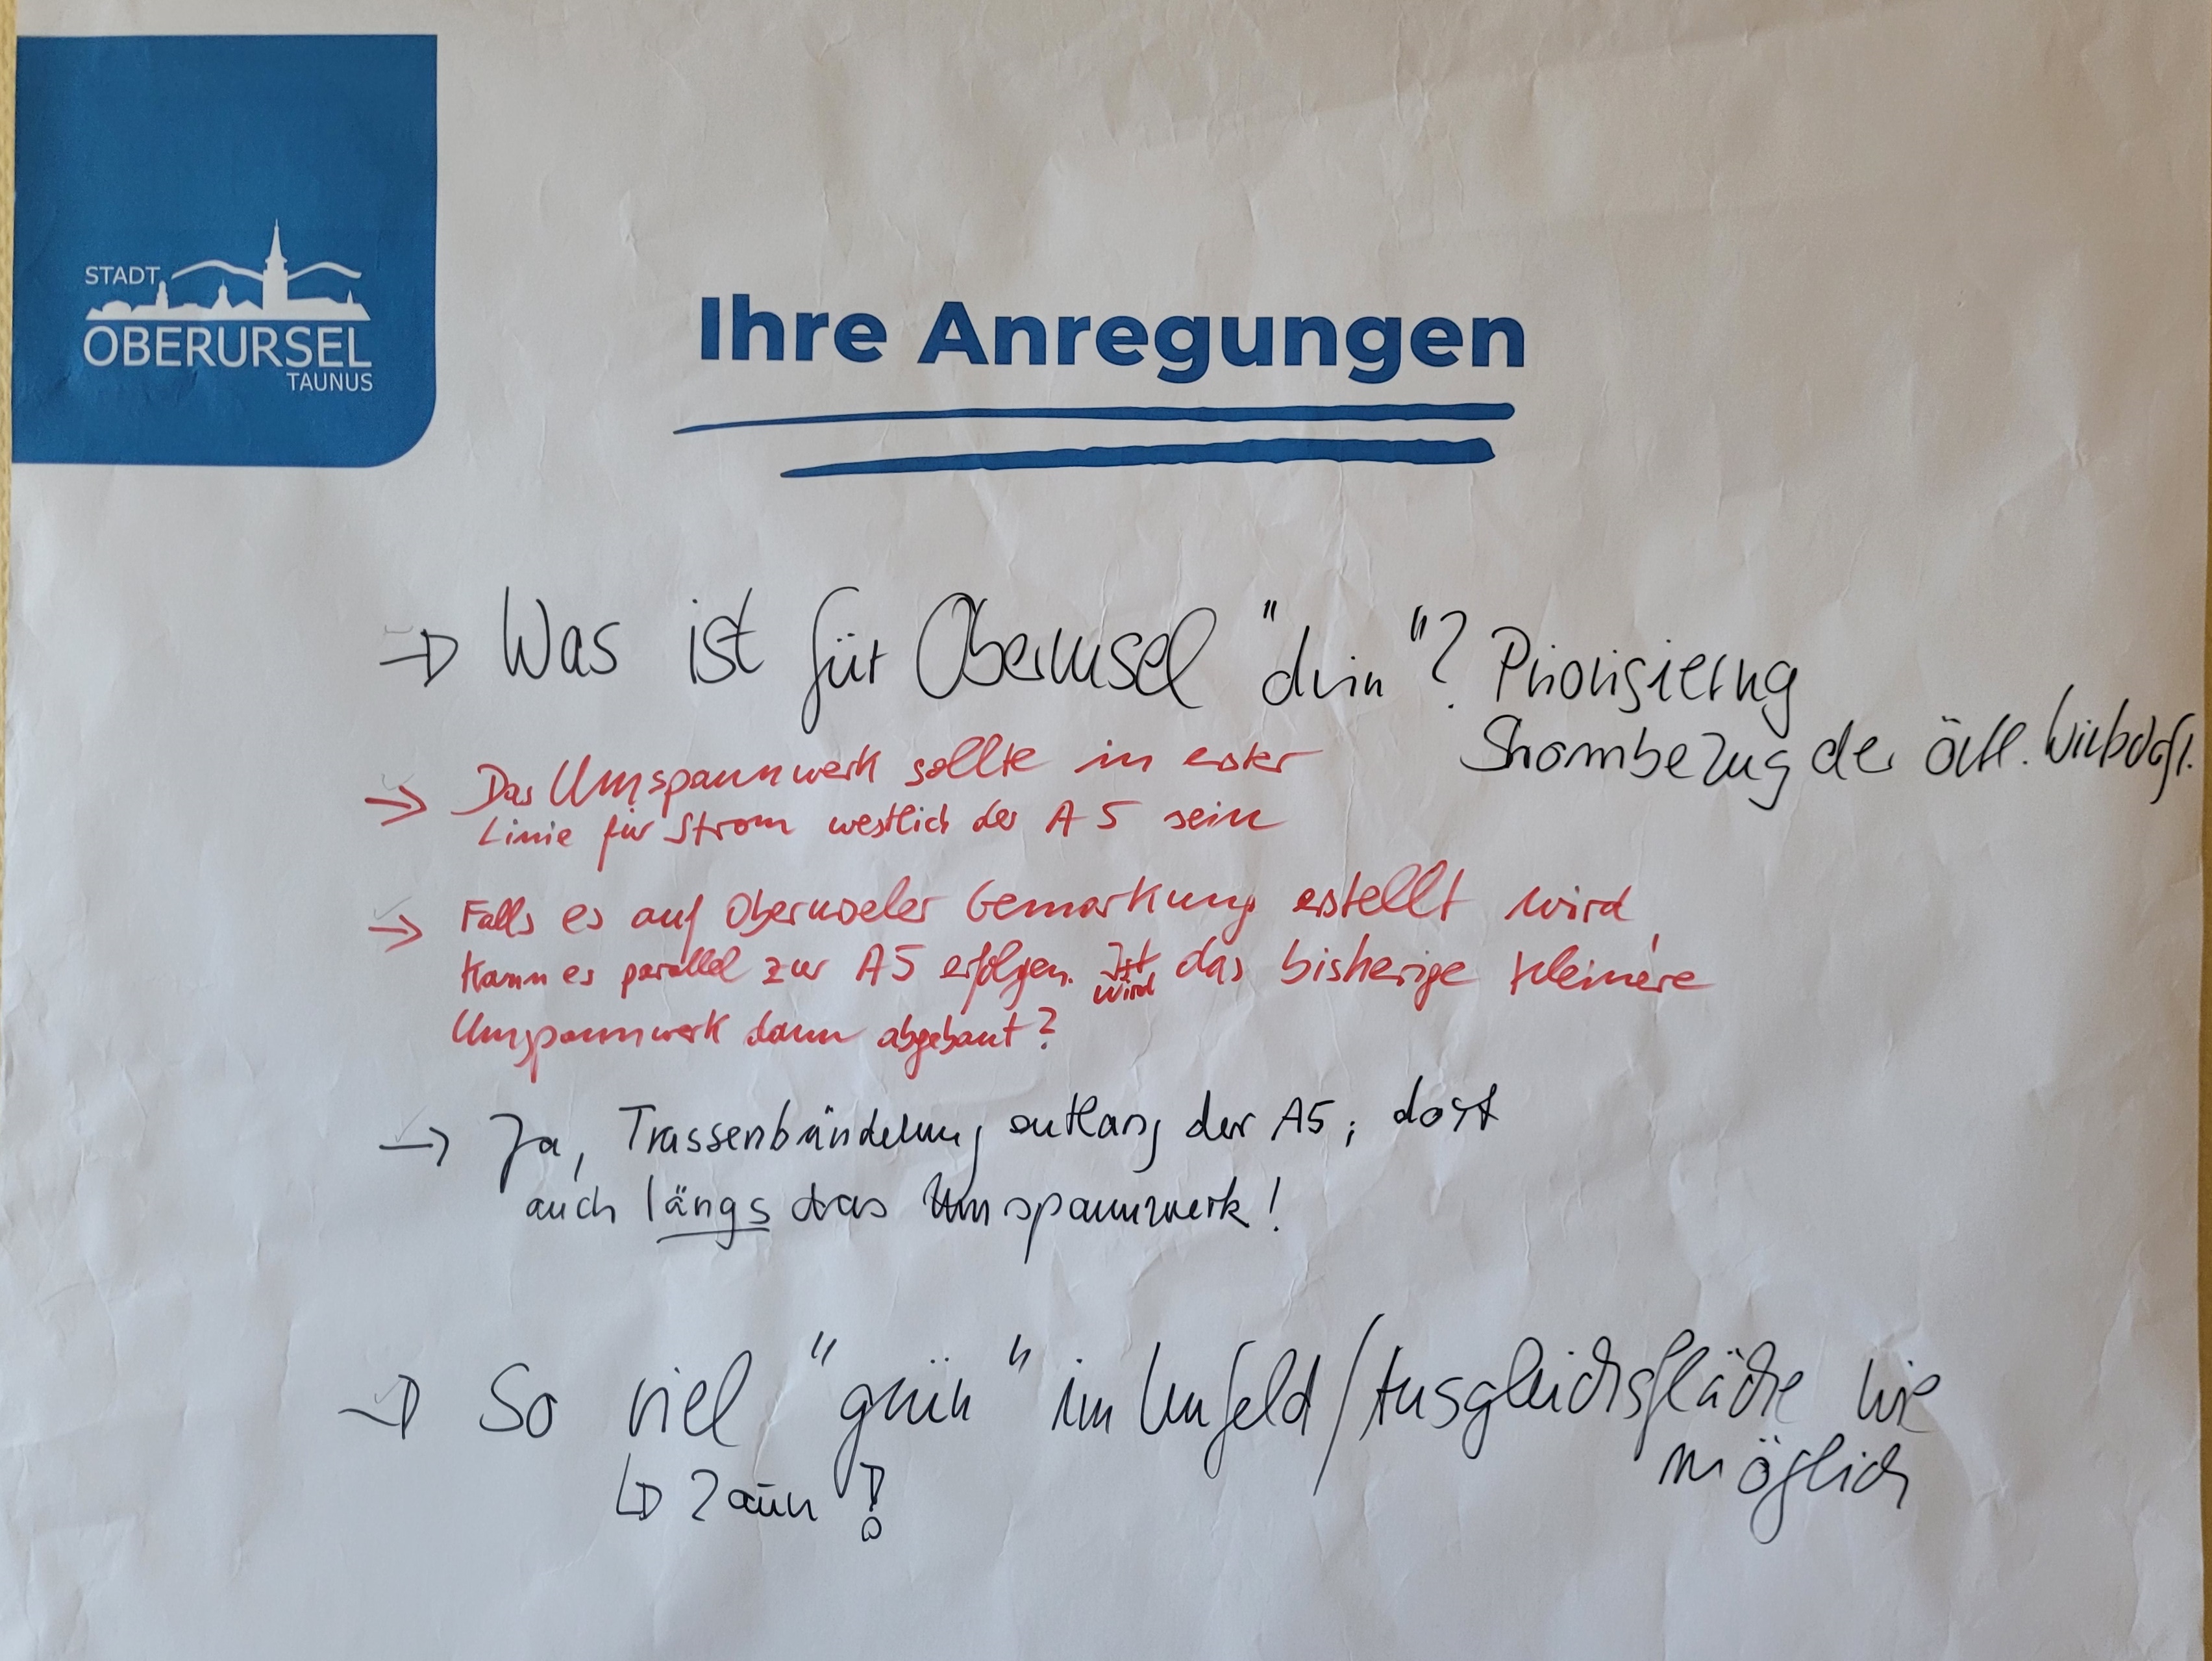 STADT
OBERURSEL
TAUNUS
Ihre Anregungen
→ Was ist für Oberursel "drin"? Priorisierung
Strombezug der örtl.
⇒ Das Umspannwerk sollte in erster
Linie für Strom westlich der A5 sein
⇒ Falls es auf Oberurseler Gemarkung erstellt wird,
kann es parallel zur A5 erfolgen. Ist wird das bisherige kleinere
Umspannwerk dann abgebaut?
→ Ja, Trassenbündelung entlang der A5; dort
auch längs das Umspannwerk!
→ So viel "grün" im Umfeld/Ausgleichsfläche wie
möglich
↳ Zaun!